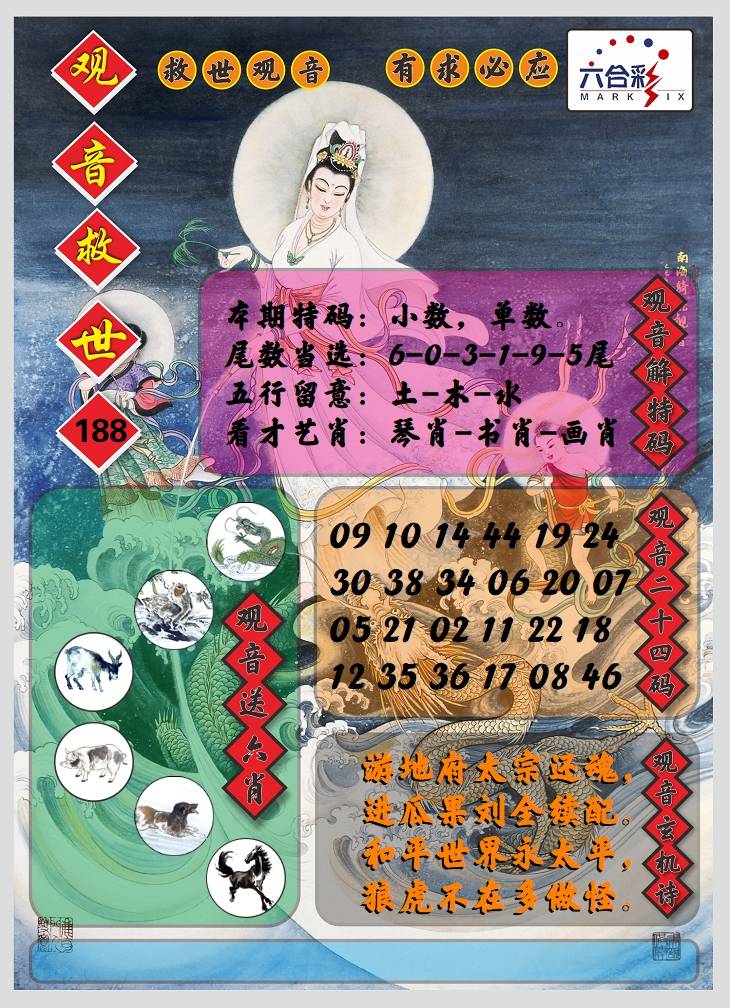 观音救世
188
救世观音 有求必应
六合彩
MARK SIX
观音解特码
本期特码：小数，单数。
尾数当选：6-0-3-1-9-5尾
五行留意：土-木-水
看才艺肖：琴肖-书肖-画肖
观音送六肖
观音二十四码
09 10 14 44 19 24
30 38 34 06 20 07
05 21 02 11 22 18
12 35 36 17 08 46
观音玄机诗
游地府太宗还魂，
进瓜果刘全续配。
和平世界永太平，
狼虎不在多做怪。